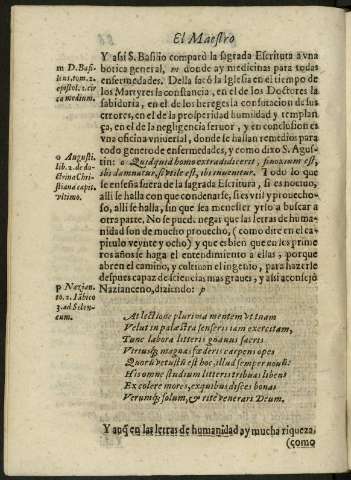 El Maestro
Y así S. Basilio comparò la sagrada Escritura a vna
botica general, m donde ay medicinas para todas
enfermedades. Della sacó la Iglesia en el tiempo de
los Martyres la constancia, en el de los Doctores la
sabiduria, en el de los hereges la confutacion de sus
errores, en el de la prosperidad humildad y templan
ça, en el de la negligencia feruor, y en conclusion es
vna oficina vniuersal, donde se hallan remedios para
todo genero de enfermedades, y como dixo S. Agus-
tin: o Quidquid homo extra didicerit, si noxium est,
ibi damnatur, si vtile est, ibi inuenitur. Todo lo que
se enseña fuera de la sagrada Escritura, si es nociuo,
alli se halla con que condenarse, si es vtil y prouecho-
so, alli se halla, sin que sea menester yrlo a buscar a
otra parte. No se puede negar que las letras de huma-
nidad son de mucho prouecho, (como dire en el ca-
pitulo veynte y ocho) y que es bien que en los prime
ros años se haga el entendimiento a ellas, porque
abren el camino, y cultiuan el ingenio, para hazerle
despues capaz de sciencias mas graues, y asi aconsejò
Nazianceno, diziendo: p
At lectione plurima mentem vt tuam
Velut in palæstra senseris iam exercitam,
Tunc labora litteris gnauus sacris
Virtusq; magnas fœderis carpens opes
Quorũ vetustũ est hoc, illud semper nouũ:
His omne studium litteris tribuas libens
Ex colere mores, ex quibus disces bonas
Verumq; solum, & rite venerari Deum.
Y aunq̃ en las letras de humanidad ay mucha riqueza,
(como
m D. Basi-
lius, tom. 2.
epistol. 2. cir
ca medium.
o Augusti.
lib. 2. de do-
ctrina Chri-
stiana capit.
vltimo.
p Nazian.
to. 2. Iãbico
3. ad Selen-
cum.